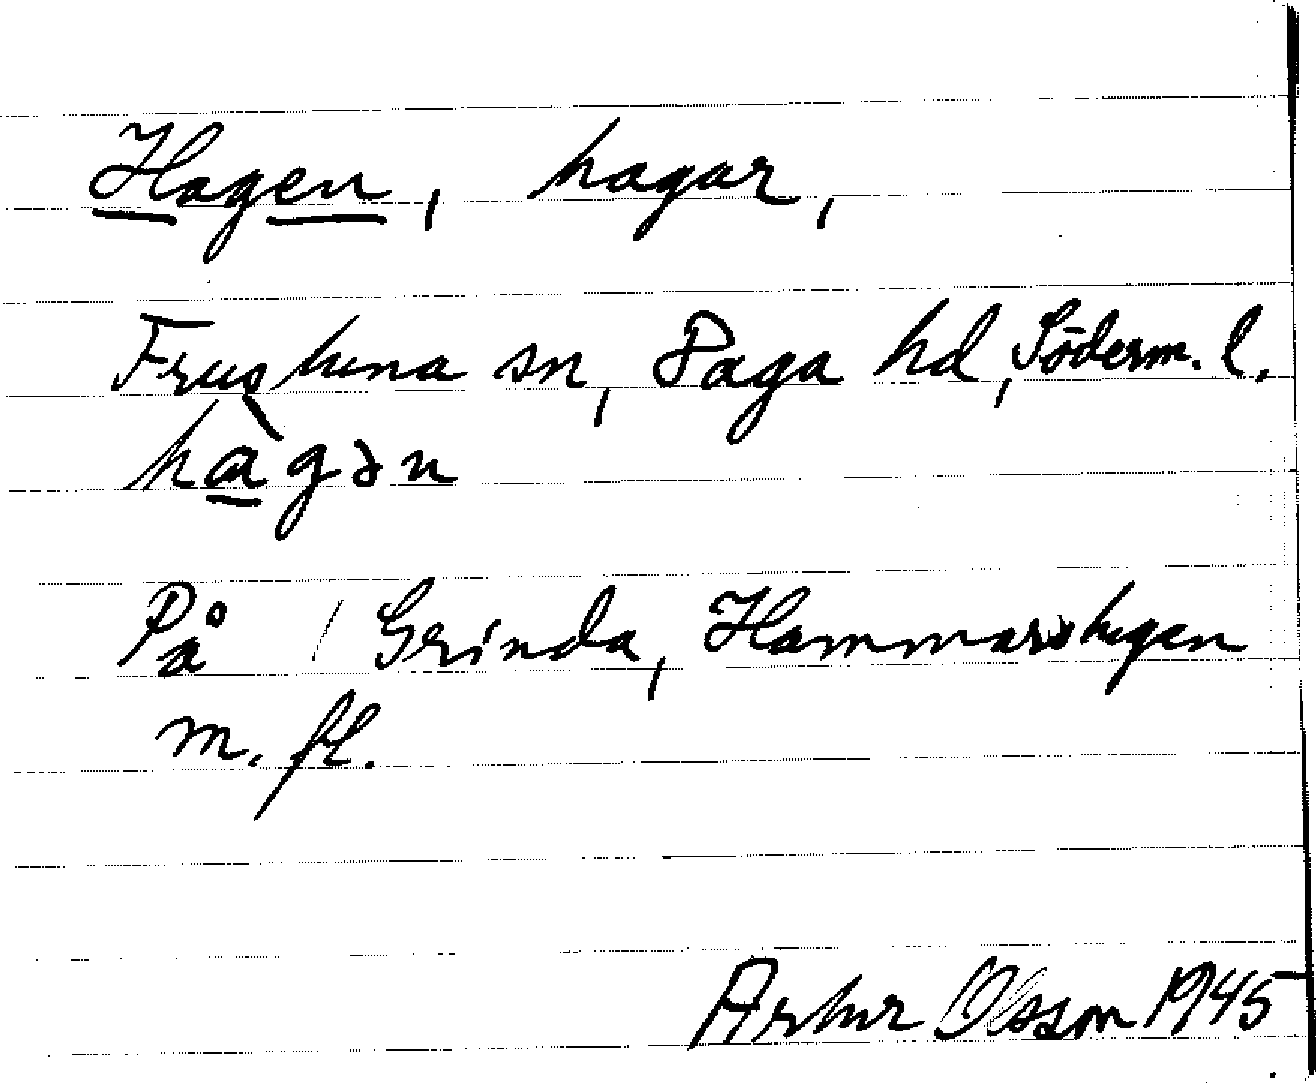 Hagen, hagar,
Frustuna sn, Daga hd, Söderm. l.
hàgən
På Grinda, Hammarstugen
m. fl.
Artur Olsson 1945